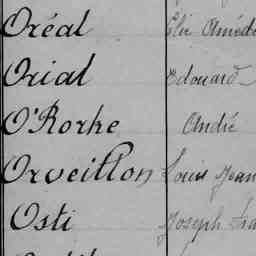 Oréal Elie Amédé
Orial Edouard
O'Rorke André
Orveillon Louis Jean
Osti Joseph